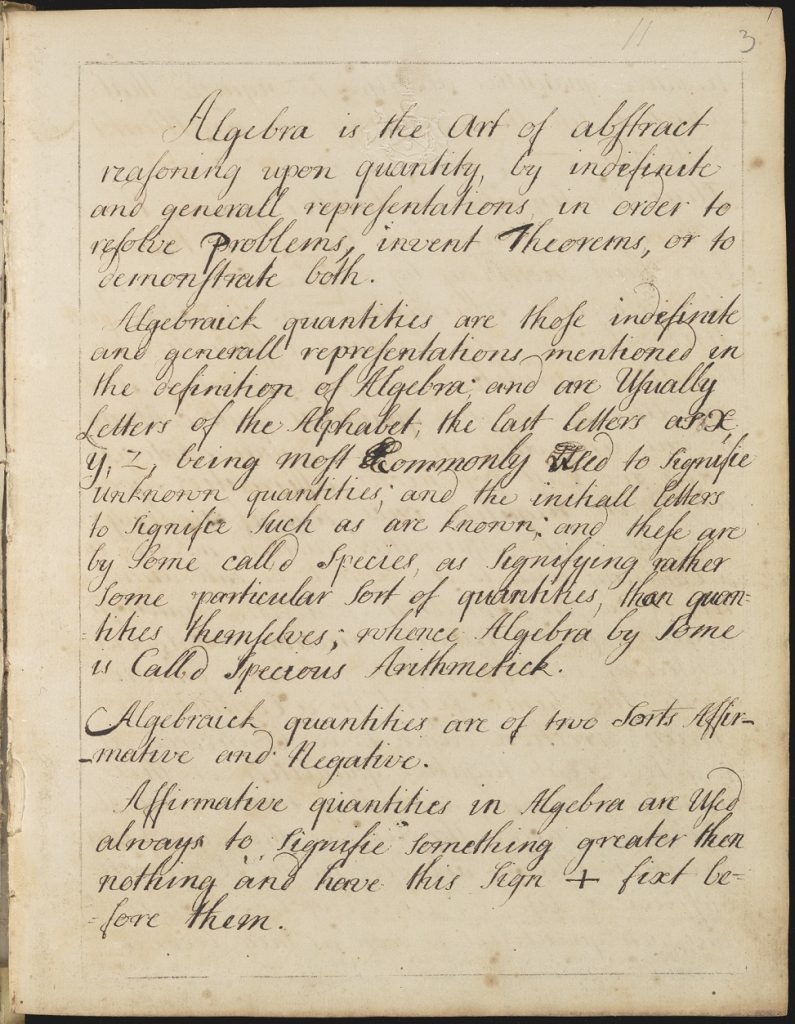 11
3
Algebra is the Art of abſtract
reaſoning upon quantity, by indefinite
and generall repreſentations in order to
reſolve Problems, invent Theorems, or to
demonſtrate both.
Algebraick quantities are thoſe indefinite
and generall repreſentations mentioned in
the definition of Algebra; and are Uſually
Letters of the Alphabet, the last letters as x
y, z, being most Commonly Uſed to ſignifie
unknown quantities; and the initiall letters
to ſignifie ſuch as are known; and theſe are
by ſome call'd Species, as ſignifying rather
ſome particular ſort of quantities, than quan=
=tities themſelves; whence Algebra by ſome
is Call'd Specious Arithmetick.
Algebraick quantities are of two ſorts Affir-
-mative and Negative.
Affirmative quantities in Algebra are Uſed
always to ſignifie ſomething greater then
nothing and have this ſign + fixt be=
=fore them.